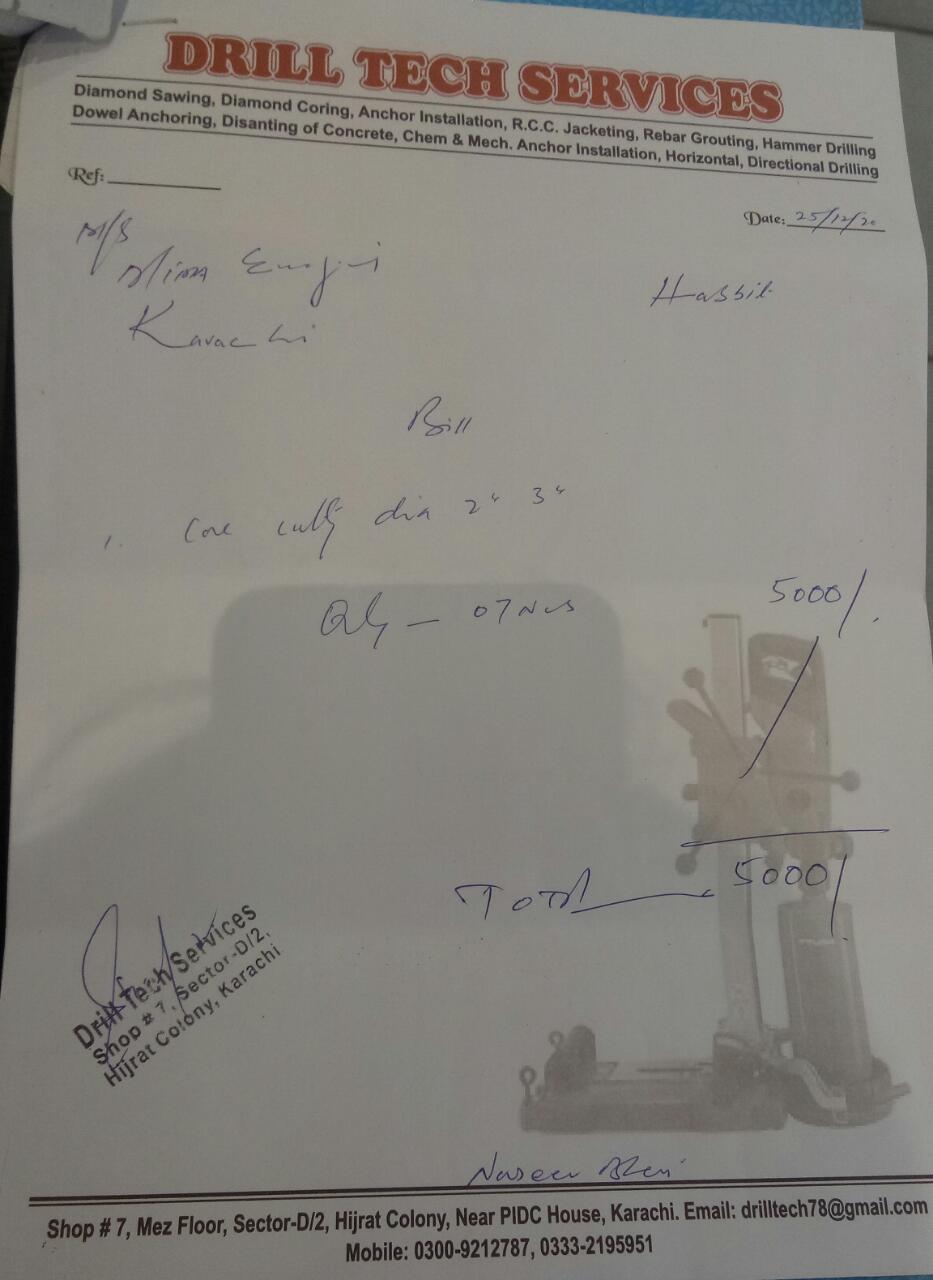 DRILL TECH SERVICES
Diamond Sawing, Diamond Coring, Anchor Installation, R.C.C. Jacketing, Rebar Grouting, Hammer Drilling
Dowel Anchoring, Disanting of Concrete, Chem & Mech. Anchor Installation, Horizontal, Directional Drilling
Ref:
Date: 25/12/20
M/S
Karachi
Bill
1. Core dia 2" 3"
Qty - 07 Nos
5000/.
Total 5000/
Drill Tech Services
Shop # 7, Sector-D/2,
Hijrat Colony, Karachi
Naseer
Shop # 7, Mez Floor, Sector-D/2, Hijrat Colony, Near PIDC House, Karachi. Email: drilltech78@gmail.com
Mobile: 0300-9212787, 0333-2195951